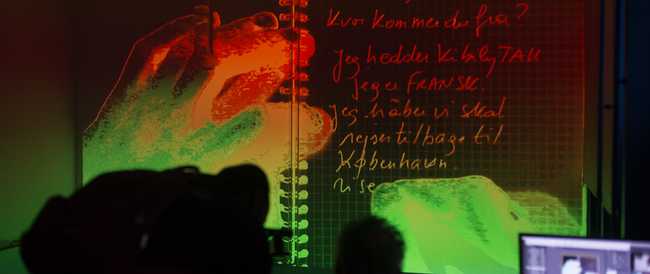 Kvor kommer du fra?
jeg hedder TAK
jeg er FRANSK.
jeg håber vi skal
rejse tilbage til
København